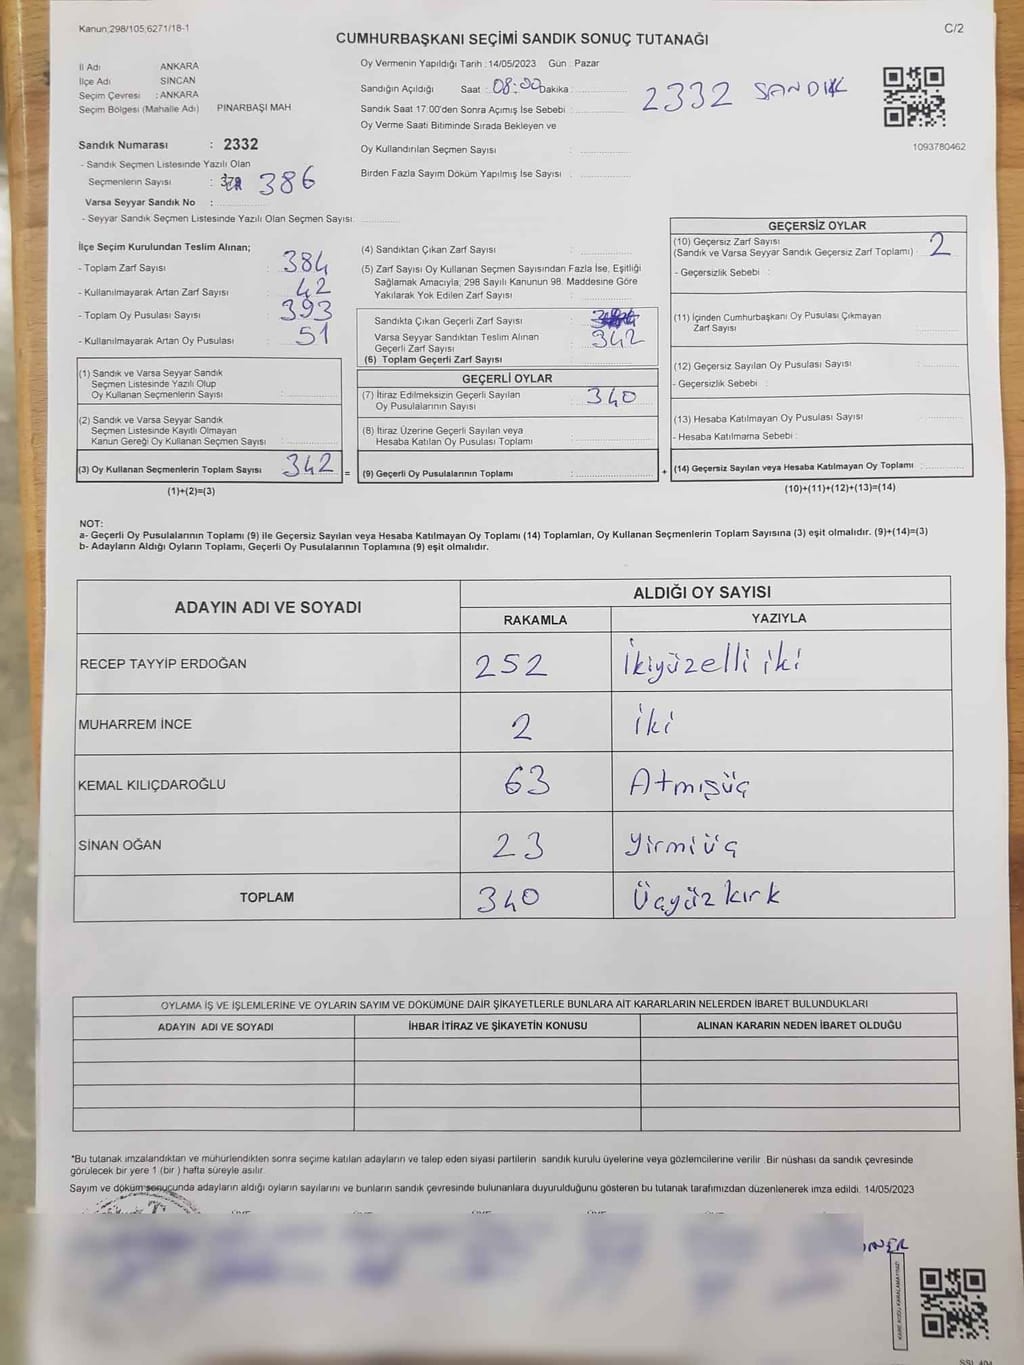 Kanun;298/105;6271/18-1
C/2
CUMHURBAŞKANI SEÇİMİ SANDIK SONUÇ TUTANAĞI
İl Adı ANKARA
İlçe Adı SİNCAN
Seçim Çevresi : ANKARA
Seçim Bölgesi (Mahalle Adı) PINARBAŞI MAH
Oy Vermenin Yapıldığı Tarih : 14/05/2023 Gün : Pazar
Sandığın Açıldığı Saat : 08:00 Dakika :
Sandık Saat 17.00'den Sonra Açılmış İse Sebebi :
Oy Verme Saati Bitiminde Sırada Bekleyen ve
Oy Kullandırılan Seçmen Sayısı :
Birden Fazla Sayım Döküm Yapılmış İse Sayısı :
2332 SANDIK
1093780462
Sandık Numarası : 2332
- Sandık Seçmen Listesinde Yazılı Olan
Seçmenlerin Sayısı : 386
Varsa Seyyar Sandık No :
- Seyyar Sandık Seçmen Listesinde Yazılı Olan Seçmen Sayısı:
İlçe Seçim Kurulundan Teslim Alınan;
- Toplam Zarf Sayısı : 384
- Kullanılmayarak Artan Zarf Sayısı : 42
- Toplam Oy Pusulası Sayısı : 393
- Kullanılmayarak Artan Oy Pusulası : 51
(1) Sandık ve Varsa Seyyar Sandık
Seçmen Listesinde Yazılı Olup
Oy Kullanan Seçmenlerin Sayısı :
(2) Sandık ve Varsa Seyyar Sandık
Seçmen Listesinde Kayıtlı Olmayan
Kanun Gereği Oy Kullanan Seçmen Sayısı :
(3) Oy Kullanan Seçmenlerin Toplam Sayısı 342 =
(1)+(2)=(3)
(4) Sandıktan Çıkan Zarf Sayısı :
(5) Zarf Sayısı Oy Kullanan Seçmen Sayısından Fazla İse, Eşitliği
Sağlamak Amacıyla, 298 Sayılı Kanunun 98. Maddesine Göre
Yakılarak Yok Edilen Zarf Sayısı :
Sandıkta Çıkan Geçerli Zarf Sayısı :
Varsa Seyyar Sandıktan Teslim Alınan
Geçerli Zarf Sayısı : 342
(6) Toplam Geçerli Zarf Sayısı :
GEÇERLİ OYLAR
(7) İtiraz Edilmeksizin Geçerli Sayılan
Oy Pusulalarının Sayısı : 340
(8) İtiraz Üzerine Geçerli Sayılan veya
Hesaba Katılan Oy Pusulası Toplamı :
(9) Geçerli Oy Pusulalarının Toplamı : +
GEÇERSİZ OYLAR
(10) Geçersiz Zarf Sayısı
(Sandık ve Varsa Seyyar Sandık Geçersiz Zarf Toplamı) : 2
- Geçersizlik Sebebi :
(11) İçinden Cumhurbaşkanı Oy Pusulası Çıkmayan
Zarf Sayısı :
(12) Geçersiz Sayılan Oy Pusulası Sayısı :
- Geçersizlik Sebebi :
(13) Hesaba Katılmayan Oy Pusulası Sayısı :
- Hesaba Katılmama Sebebi :
(14) Geçersiz Sayılan veya Hesaba Katılmayan Oy Toplamı :
(10)+(11)+(12)+(13)=(14)
NOT:
a- Geçerli Oy Pusulalarının Toplamı (9) ile Geçersiz Sayılan veya Hesaba Katılmayan Oy Toplamı (14) Toplamları, Oy Kullanan Seçmenlerin Toplam Sayısına (3) eşit olmalıdır. (9)+(14)=(3)
b- Adayların Aldığı Oyların Toplamı, Geçerli Oy Pusulalarının Toplamına (9) eşit olmalıdır.
ADAYIN ADI VE SOYADI ALDIĞI OY SAYISI
RAKAMLA YAZIYLA
RECEP TAYYİP ERDOĞAN 252 İkiyüzelli iki
MUHARREM İNCE 2 iki
KEMAL KILIÇDAROĞLU 63 Atmışüç
SİNAN OĞAN 23 yirmiüç
TOPLAM 340 Üçyüz kırk
OYLAMA İŞ VE İŞLEMLERİNE VE OYLARIN SAYIM VE DÖKÜMÜNE DAİR ŞİKAYETLERLE BUNLARA AİT KARARLARIN NELERDEN İBARET BULUNDUKLARI
ADAYIN ADI VE SOYADI İHBAR İTİRAZ VE ŞİKAYETİN KONUSU ALINAN KARARIN NEDEN İBARET OLDUĞU
*Bu tutanak imzalandıktan ve mühürlendikten sonra seçime katılan adayların ve talep eden siyasi partilerin sandık kurulu üyelerine veya gözlemcilerine verilir. Bir nüshası da sandık çevresinde
görülecek bir yere 1 (bir ) hafta süreyle asılır.
Sayım ve döküm sonucunda adayların aldığı oyların sayılarını ve bunların sandık çevresinde bulunanlara duyurulduğunu gösteren bu tutanak tarafımızdan düzenlenerek imza edildi. 14/05/2023